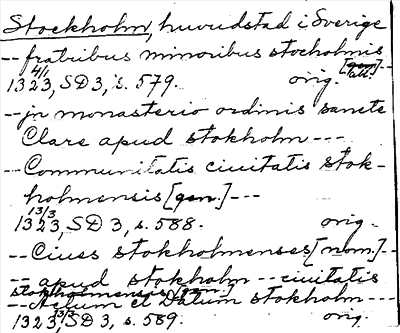 Stockholm, huvudstad i Sverige
-- fratribus minoribus stocholmis [gen. abl.] --
1323 4/1, SD 3, s. 579. orig.
-- jn monasterio ordinis sancte
Clare apud stokholm ---
-- Communitatis ciuitatis stok-
holmensis [gen.] ---
1323 13/3, SD 3, s. 588. orig.
-- Ciues stokholmenses [nom.] --
-- apud stokholm -- ciuitatis
stokholmensis [gen.]
-- et Datum stokholm ---
1323 13/3, SD 3, s. 589. orig.